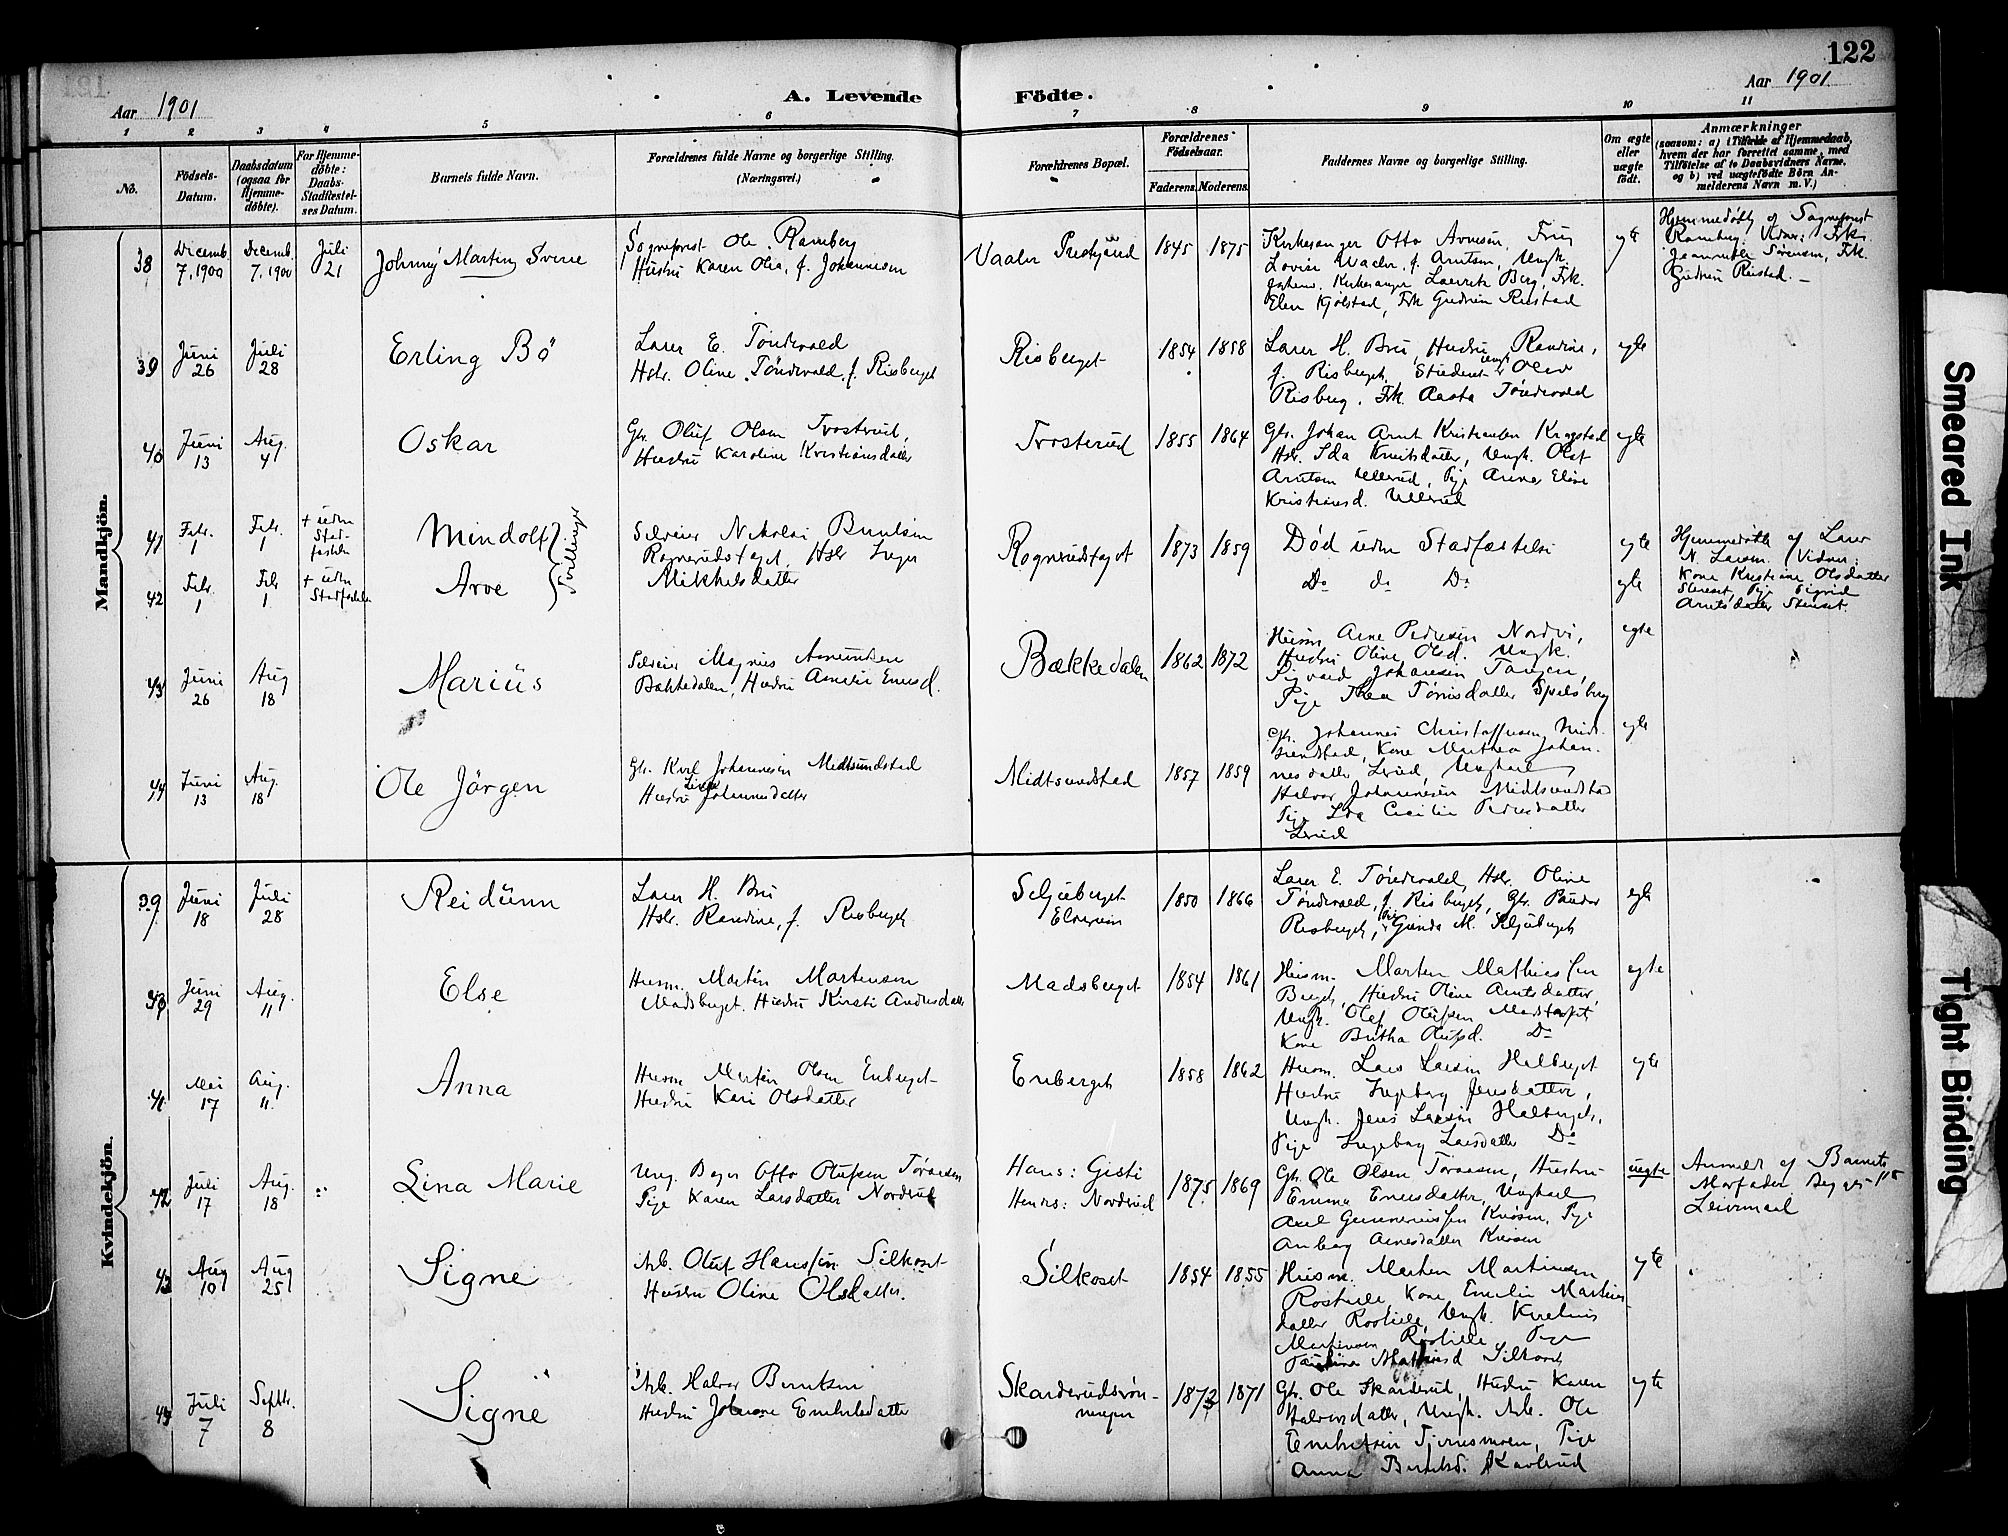 122
Aar 1901
A. Levende
Födte.
Aar 1901.
1 2 3 4 5 6 7 8 9 10 11
No.
Födsels-
Datum.
Daabsdatum
(ogsaa for
Hjemme-
döbte).
For Hjemme-
döbte:
Daabs-
Stadfæstel-
ses Datum.
Barnets fulde Navn.
Forældrenes fulde Navne og borgerlige Stilling.
(Næringsvei.)
Forældrenes Bopæl.
Forældrenes
Födselsaar.
Faderens. Moderens.
Faddernes Navne og borgerlige Stilling.
Om ægte
eller
uægte
födt.
Anmærkninger
(saasom: a) Tilfælde af Hjemmedaab,
hvem der har forrettet samme, med
Tilföielse af to Daabsvidners Navne,
og b) ved uægtefödte Börn An-
melderens Navn m. V.)
Mandkjön.
38
Decemb.
7, 1900
Decemb.
7, 1900
Juli
21
Johnny Martin Sverre
Sogneprest Ole Ramberg
Hustru Karen Olea, f. Johannesen
Vaaler Prestgaard
1845 1875
Kirkesanger Otto Arnesen, Fru
Lovise Vaaler, f. Arntsen, Ungk.
Kirkesanger Lauritz Berg, Frk.
Elen Kjölstad, Frk Gudrun Rustad
egte
Hjemmedøbt af Sogneprest
Ramberg. Vidner: Frk.
Sørensen, Frk.
Gudrun Rustad. –
39
Juni
26
Juli
28
Erling Bö
Lærer E. Töndevold
Hstr. Oline Töndevold, f. Risberget
Risberget
1854 1858
Lærer H. Bru, Hustru Randine,
f. Risberget, Student Olav
Risberg, Frk. Aasta Töndevold
egte
40
Juni
13
Aug.
4
Oskar
Gbr. Oluf Olsen Trosterud,
Hustru Karoline Kristiansdatter
Trosterud
1855 1864
Gbr. Johan Arnt Kristiansen Krogstad
Hstr. Ida Knutsdatter, Ungk. Olaf
Arntsen Ullerud, Pige Anna Eline
Kristiansd. Ullerud
egte
41
Febr.
1
Febr.
1
+ uden
Stad-
fæstelse
Mindolf
Tvillinger
Selveier Nikolai Berntsen
Rognerudstaget, Hstr Inger
Mikkelsdatter
Rognrudstaget
1873 1859
Død uden Stadfæstelse
egte
Hjemmedøbt af Lærer
N. Larsen. Vidner:
Kone Kristiane Olsdatter
Stenset, Pige Sigrid
Arntsdatter Stenset.
42
Febr.
1
Febr
1
+ uden
Stadfæstelse
Arve
Do do Do
egte
43
Juni
26
Aug
18
Marius
Selveier Magnus Amundsen
Bækkedalen, Hustru Amalie Emesd.
Bækkedalen
1862 1872
Husm. Arne Pedersen Nordvi,
Hustru Oline Olsd. Ungk.
Sigvard Johansen Tangen,
Pige Thea Tønnisdatter Spelsberg
egte
44
Juni
13
Aug.
18
Ole Jörgen
Gbr. Karl Johannesen Midtsundstad
Hustru Johannesdatter
Midtsundstad
1857 1859
Gbr. Johannes Christoffersen Midt-
sundstad, Kone Marthea Johan-
nesdatter Lerud, Ungkarl
Halvor Johannesen Midtsundstad
Pige Ida Cecilie Pedersdatter
Lerud
egte
Kvindekjön.
39
Juni
18
Juli
28
Reidunn
Lærer H. Bru
Hstr. Randine, f. Risberget
Seljuberget
Elverum
1850 1866
Lærer E. Töndevold, Hstr. Oline
Töndevold, f. Risberget, Gbr. Peder
Risberget, Gunda M. Seljuberget
egte
40
Juni
29
Aug.
11
Else
Husm. Martin Martinsen
Madsberget, Hustru Kirsti Andersdatter
Madsberget
1854 1861
Husm. Marten Mathiesen
Berget, Hustru Oline Arntsdatter,
Ungk. Olaf Olufsen
Kone Birtha Olufsd. Do
egte
41
Mai
17
Aug.
11
Anna
Husm Martin Olsen Enberget
Hustru Kari Olsdatter
Enberget
1858 1862
Husm. Lars Larsen Halberget
Hustru Ingeborg Jensdatter,
Ungk. Jens Larsen Halberget,
Pige Ingeborg Larsdatter Do
egte
42
Juli
17
Aug.
18
Lina Marie
Ung. Bager Otto Olufsen
Pige Karen Larsdatter Nordrud
Hans: Gjesti
Hendes: Nordrud
1875 1869
Gbr. Ole Olsen Hustru
Emma Emesdatter, Ungkarl
Axel Gunneriusen Kvösen, Pige
Anberg Arnesdatter Kvösen
uegte
Anmeldt af Barnets
Morfader
43
Aug
10
Aug
25
Signe
Arb. Oluf Hansen Silkoset
Hustru Oline Olsdatter.
Silkoset
1854 1855
Husm. Marten Martinsen
Rostvile Kone Emilie Martins-
datter Ungk. Kornelius
Martinsen Pige
Silkoset
egte
44
Juli
7
Septbr.
8
Signe
Arb. Halvor Berntsen
Hustru Johanne Embretsdatter
Skarderudsrøn-
ningen
1873 1871
Gbr. Ole Skarderud, Hustru Karen
Halvorsdatter, Ungk. Arb. Ole
Embretsen Tjernsmoen, Pige
Anna Berntsd. Skavlerud
egte
Smeared Ink
Tight Binding